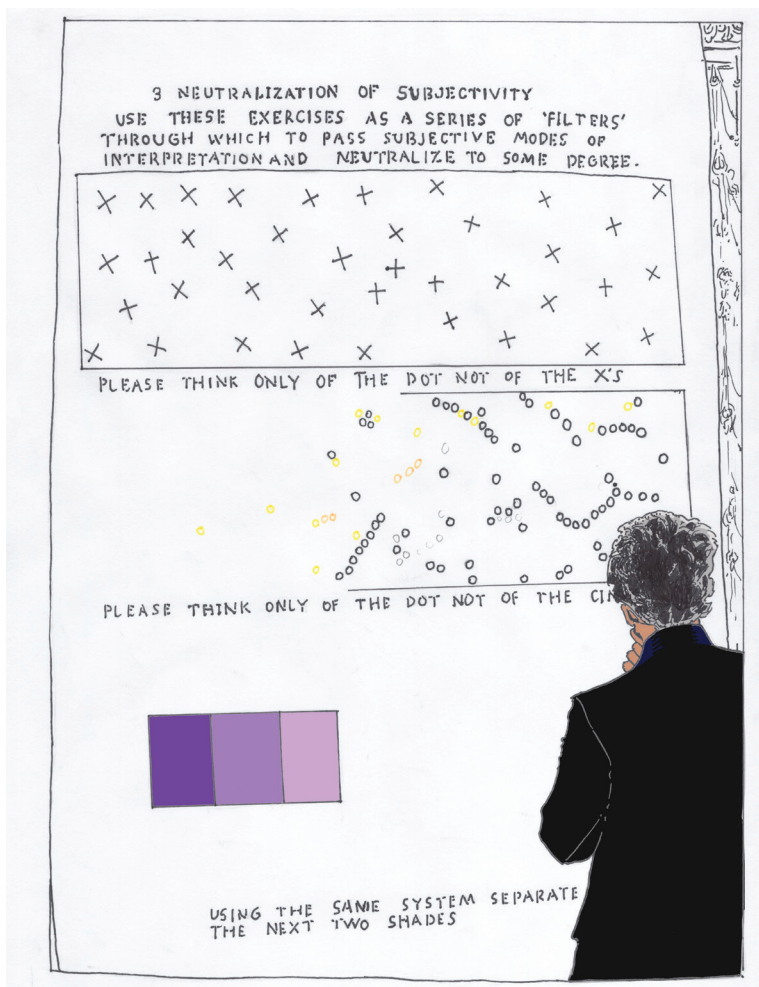 3 NEUTRALIZATION OF SUBJECTIVITY
USE THESE EXERCISES AS A SERIES OF 'FILTERS'
THROUGH WHICH TO PASS SUBJECTIVE MODES OF
INTERPRETATION AND NEUTRALIZE TO SOME DEGREE.
PLEASE THINK ONLY OF THE DOT NOT OF THE X'S
PLEASE THINK ONLY OF THE DOT NOT OF THE
USING THE SAME SYSTEM SEPARATE
THE NEXT TWO SHADES